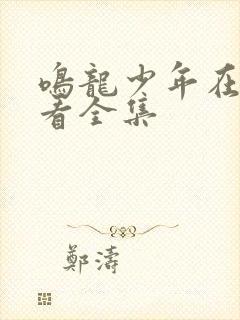 鳴龍少年在
看全集
鄭濤